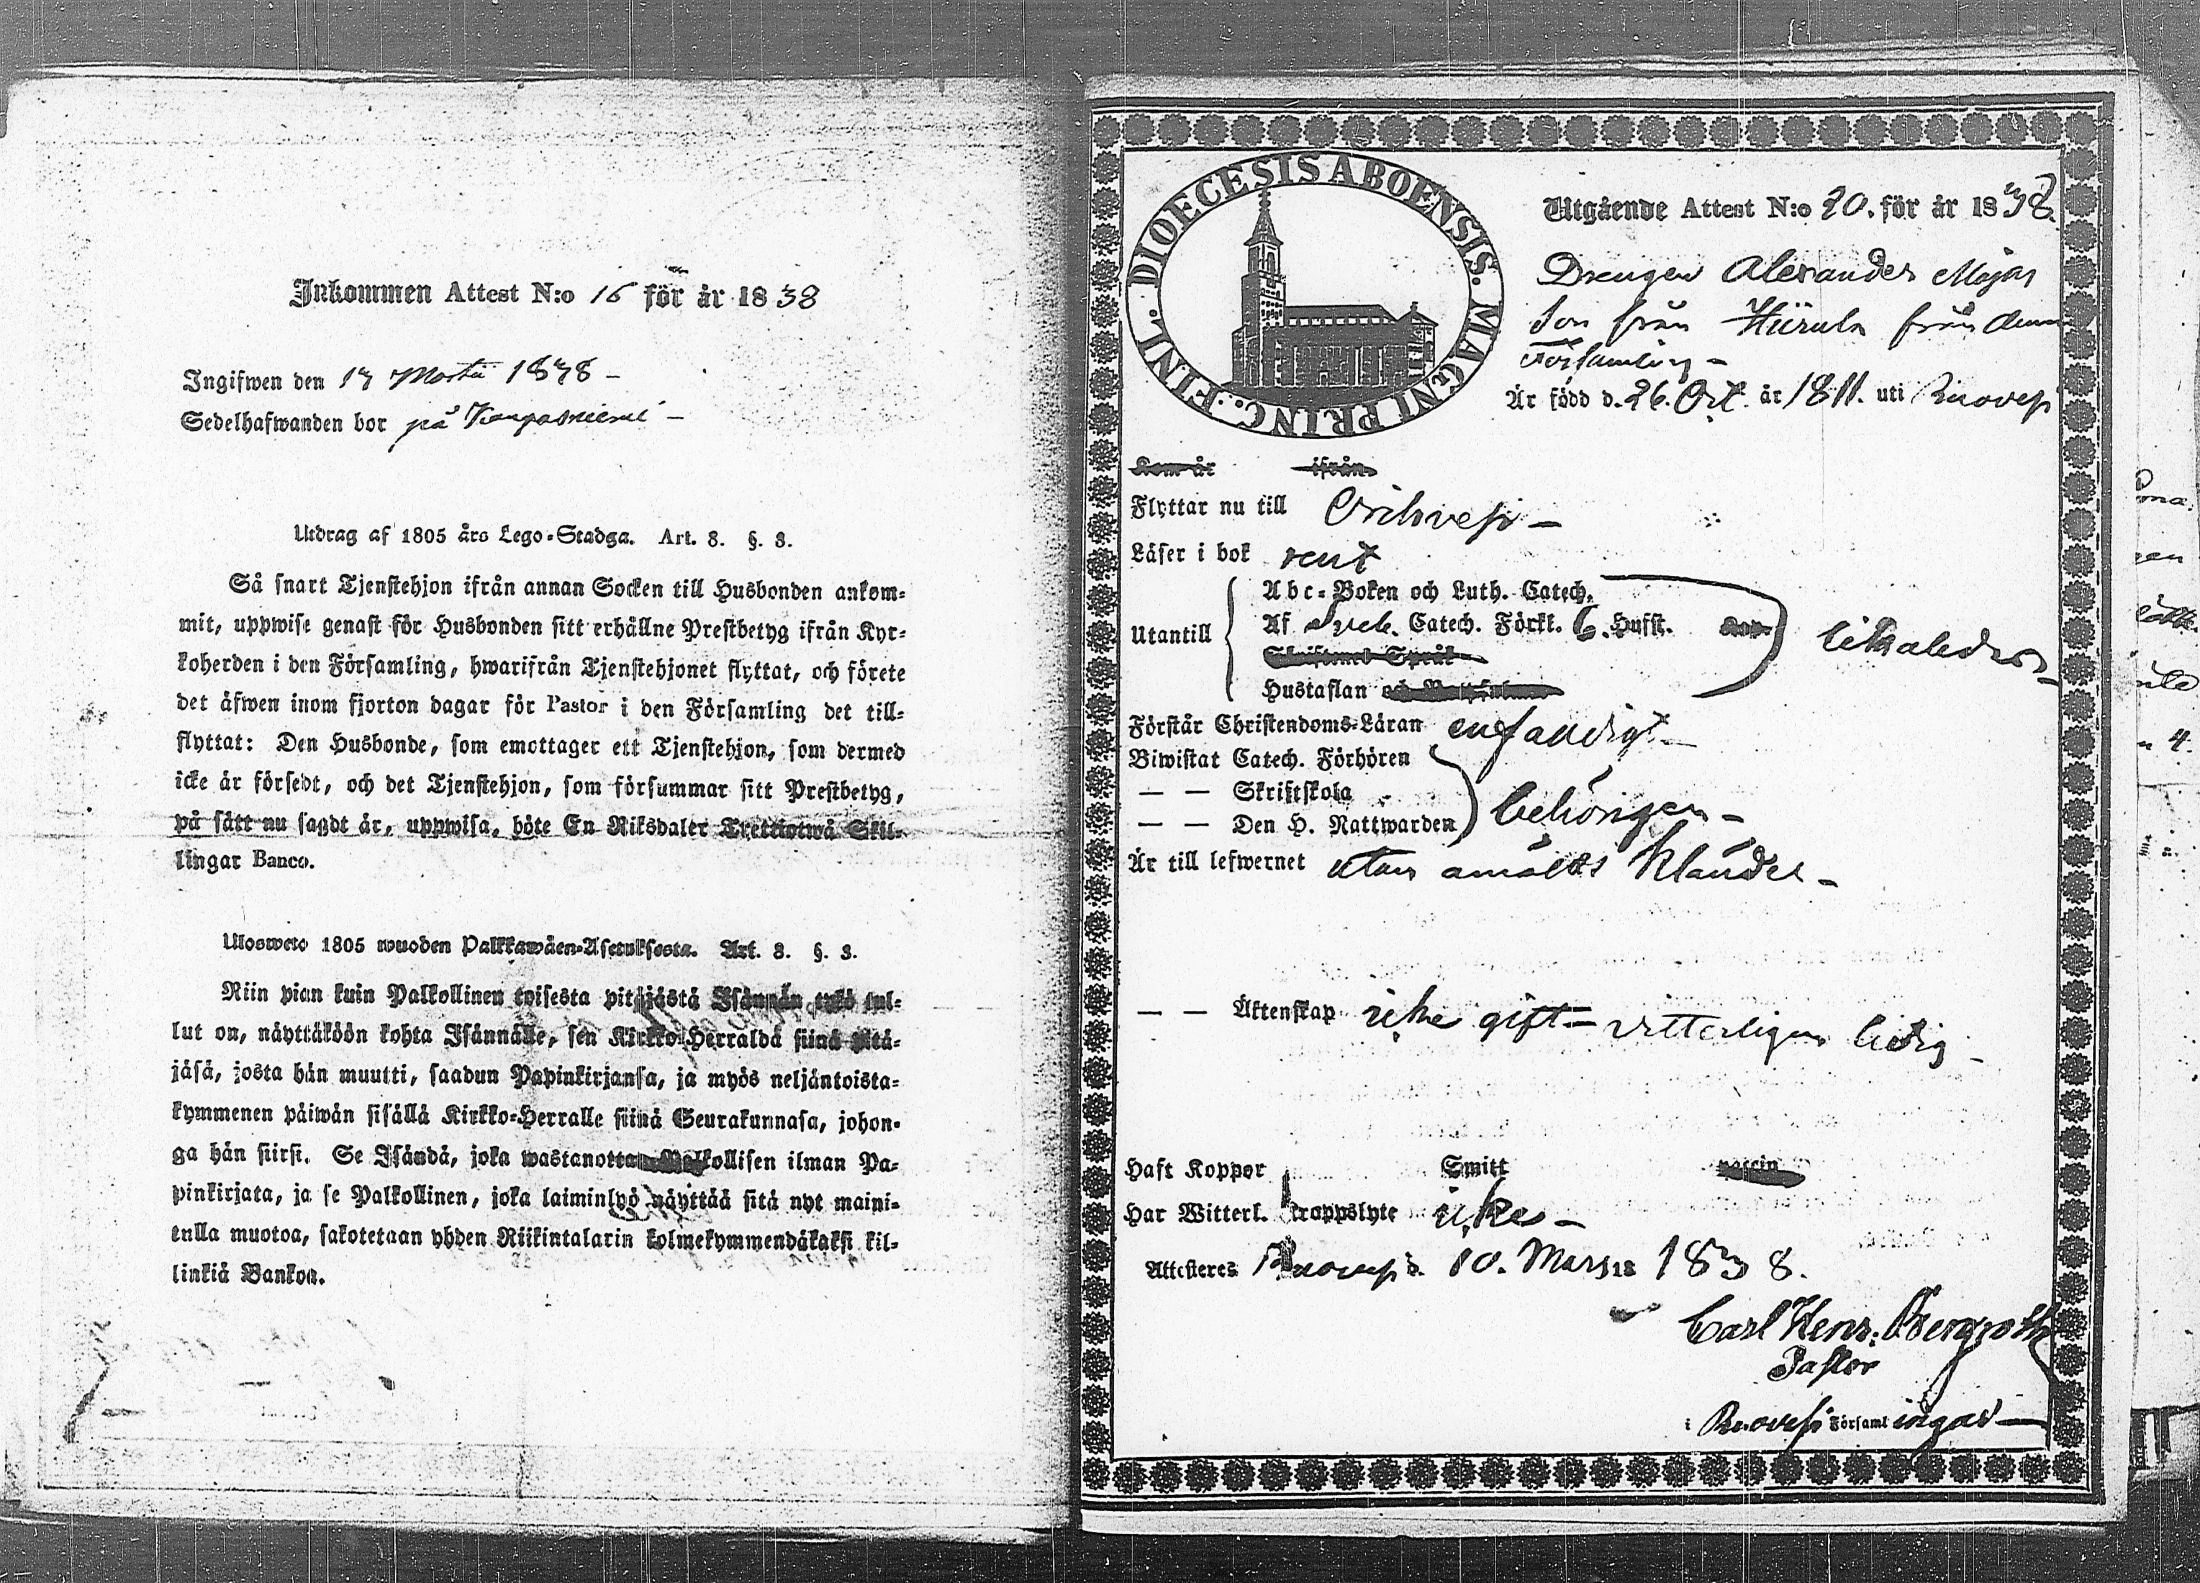 Inkommen Attest N:o 16 för år 1838
Ingifwen den 17 Martii 1838 –
Sedelhafwanden bor på –
Utdrag af 1805 års Lego-Stadga. Art. 8. §. 3.
Så snart Tjenstehjon ifrån annan Socken till Husbonden ankom-
mit, uppwise genast för Husbonden sitt erhållne Prestbetyg ifrån Kyr-
koherden i den Församling, hwarifrån Tjenstehjonet flyttat, och förete
det äfwen inom fjorton dagar för Pastor i den Församling det till-
flyttat: Den Husbonde, som emottager ett Tjenstehjon, som dermed
icke är försedt, och det Tjenstehjon, som försummar sitt Prestbetyg,
på sätt nu sagdt är, uppwisa, böte En Riksdaler Trettiotwå Skil-
lingar Banco.
Ulosweto 1805 wuoden Palkkawäen-Asetuksesta. Art. 8. §. 3.
Niin pian kuin Palkollinen toisesta pitäjästä Isännän tykö tul-
lut on, näyttäköön kohta Isännälle, sen Kirkko-Herralda siinä pitä-
jäsä, josta hän muutti, saadun Papinkirjansa, ja myös neljäntoista-
kymmenen päiwän sisällä Kirkko-Herralle siinä Seurakunnasa, johon-
ga hän siirsi. Se Isändä, joka wastanottaa Palkollisen ilman Pa-
pinkirjata, ja se Palkollinen, joka laiminlyö näyttää sitä nyt maini-
tulla muotoa, sakotetaan yhden Riikintalarin kolmekymmendäkaksi kil-
linkiä Bankoa.
DIOECESIS ABOENSIS. MAGNI PRINC. FINL.
Utgående Attest N:o 20. för år 1838.
Drengen Alexander Majas
Son från från denna
Församling –
Är född d. 26. Oct. år 1811. uti Ruovesi
Kom år ifrån
Flyttar nu till Orihvesi –
Läser i bok rent
Abc-Boken och Luth. Catech.
Utantill Af Sveb. Catech. Förkl. 6. Hufst.
Christenet Språk
Hustaflan och
Förstår Christendoms-Läran enfaldigt –
Biwistat Catech. Förhören
— — Skriftskola behörigen –
— — Den H. Nattwarden
Är till lefwernet utan anmäldt klander –
— — Äktenskap icke gift – vitterligen ledig –
Haft Koppor Smitt vaccin
Har Witterl. kroppslyte icke –
Attesteras Ruovesi d. 10. Martii 1838.
Carl Henr. Bergroth
Pastor
i Ruovesi Församlingar –